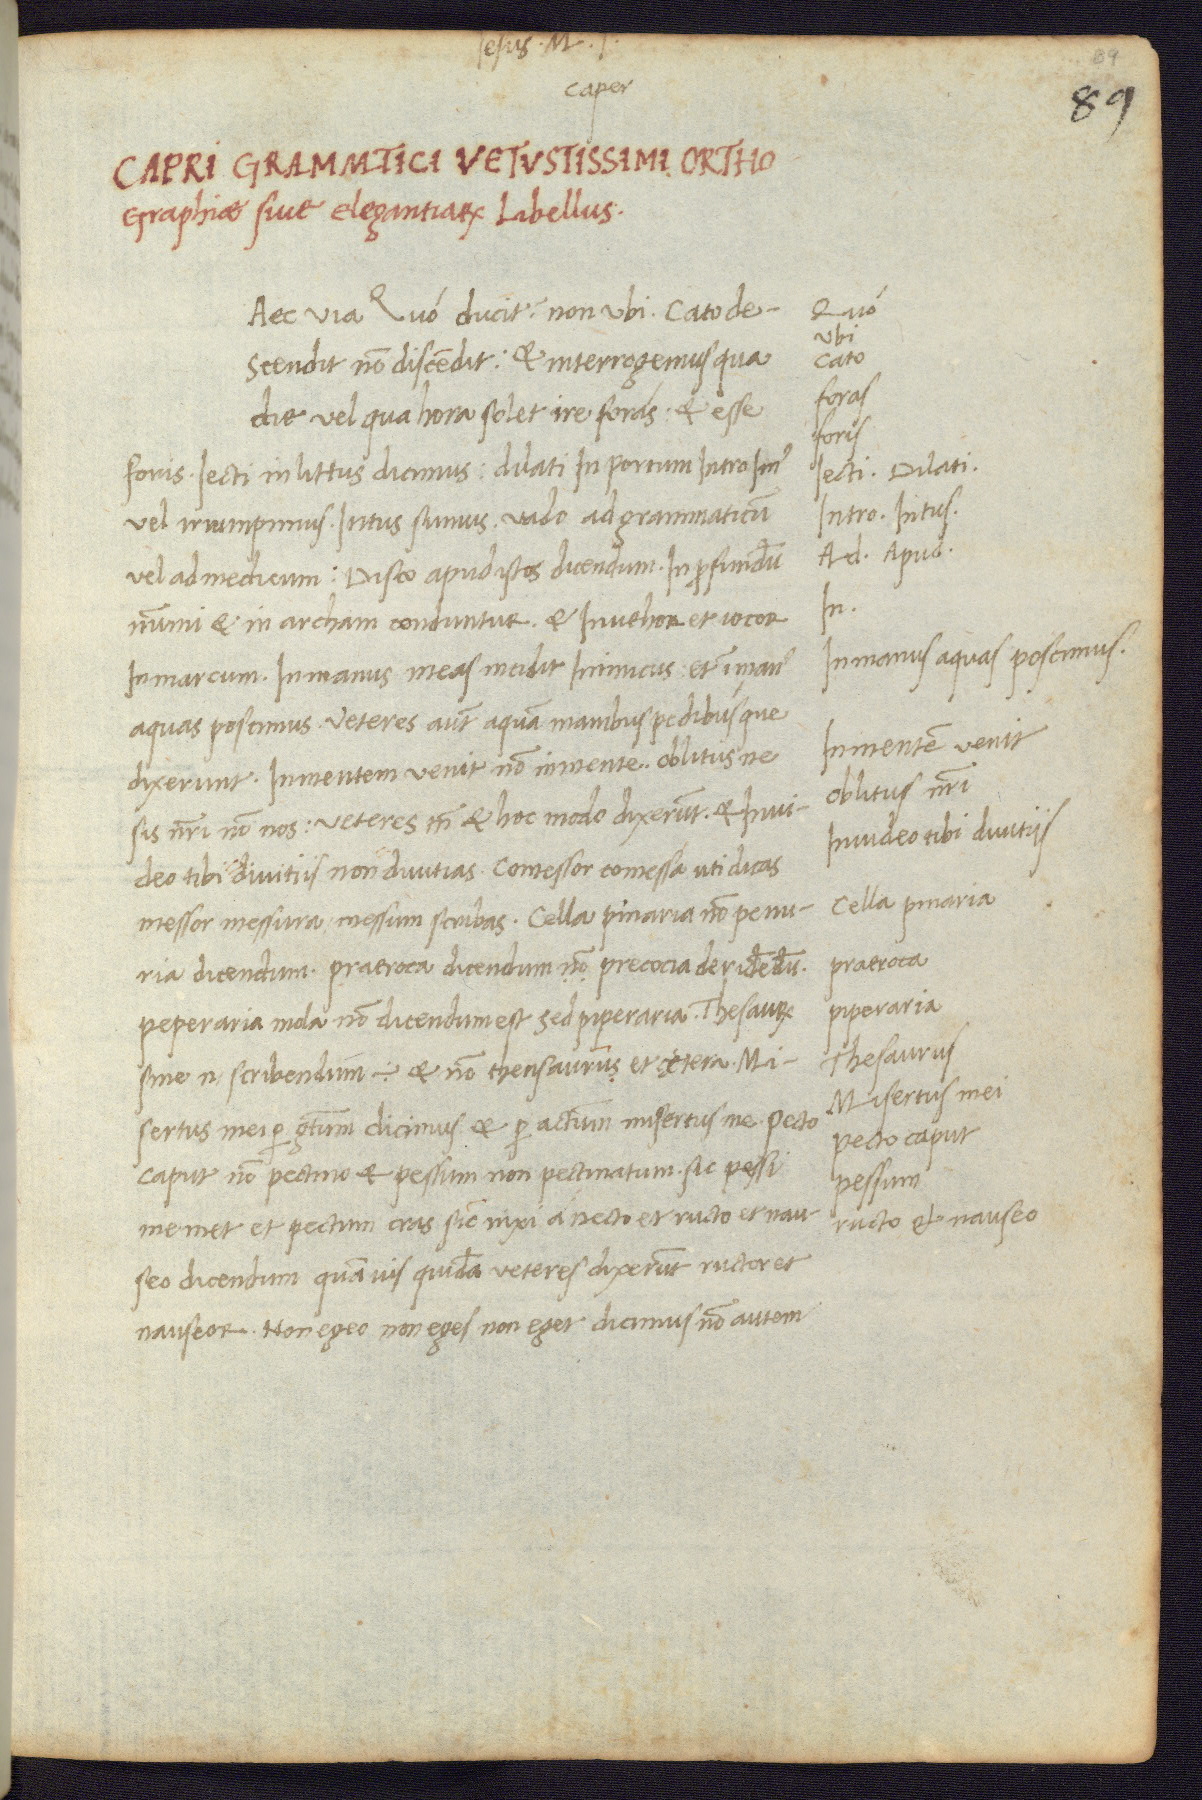 Iesus. M. I.
caper
89
89
CAPRI GRAMMATICI VETVSTISSIMI ORTHO
Graphiae sive elegantiaꝝ Libellus.
Aec via Quó ducit: non ubi. Cato de-
scendit nō discēdit: & interrogemus qua
die vel qua hora solet ire foras: & esse
foris. Iecti in littus dicimus: dilati In portum Intro Im⁹
vel irrumpimus. Intus sumus. vado ad grammaticū
vel ad medicum: Disco apud istos dicendum. In ꝓfundū
nūmi & in archam conduntur. & Invehor et iocor
In marcum. In manus meas incidit Inimicus: et ī man⁹
aquas poscimus. Veteres aūt aquā manibus pedibusque
dixerunt. In mentem venit nō in mente. oblitus ne
sis nr̄i nō nos: veteres tn̄ & hoc modo dixerūt. & Invi-
deo tibi divitiis non divitias. Comessor comessa uti dicas
messor messura messum scribas. Cella pinaria nō penu-
ria dicendum. praecoca dicendum nō precocia deridēdū.
peperaria mola nō dicendum est sed piperaria. Thesauꝝ
sine n scribendum ÷ & nō thensaurus et cętera. Mi-
sertus mei ꝑ gtīum dicimus & ꝑ actīum misertus me. pecto
caput nō pectino & pessum non pectinatum. sic pessi
memet et pectum cras sic nixi a necto et ructo et nau
seo dicendum quā vis quidā veteres dixerūt ructor et
nauseor. Non egeo non eges non eget dicimus nō autem
Quó
ubi
cato
foras
foris
Iecti. Dilati.
Intro. Intus.
Ad. Apud.
In.
In manus aquas poscimus.
In mentē venit
oblitus nr̄i
Invideo tibi divitiis
Cella pinaria
praecoca
piperaria
Thesaurus
Misertus mei
pecto caput
pessum
ructo & nauseo